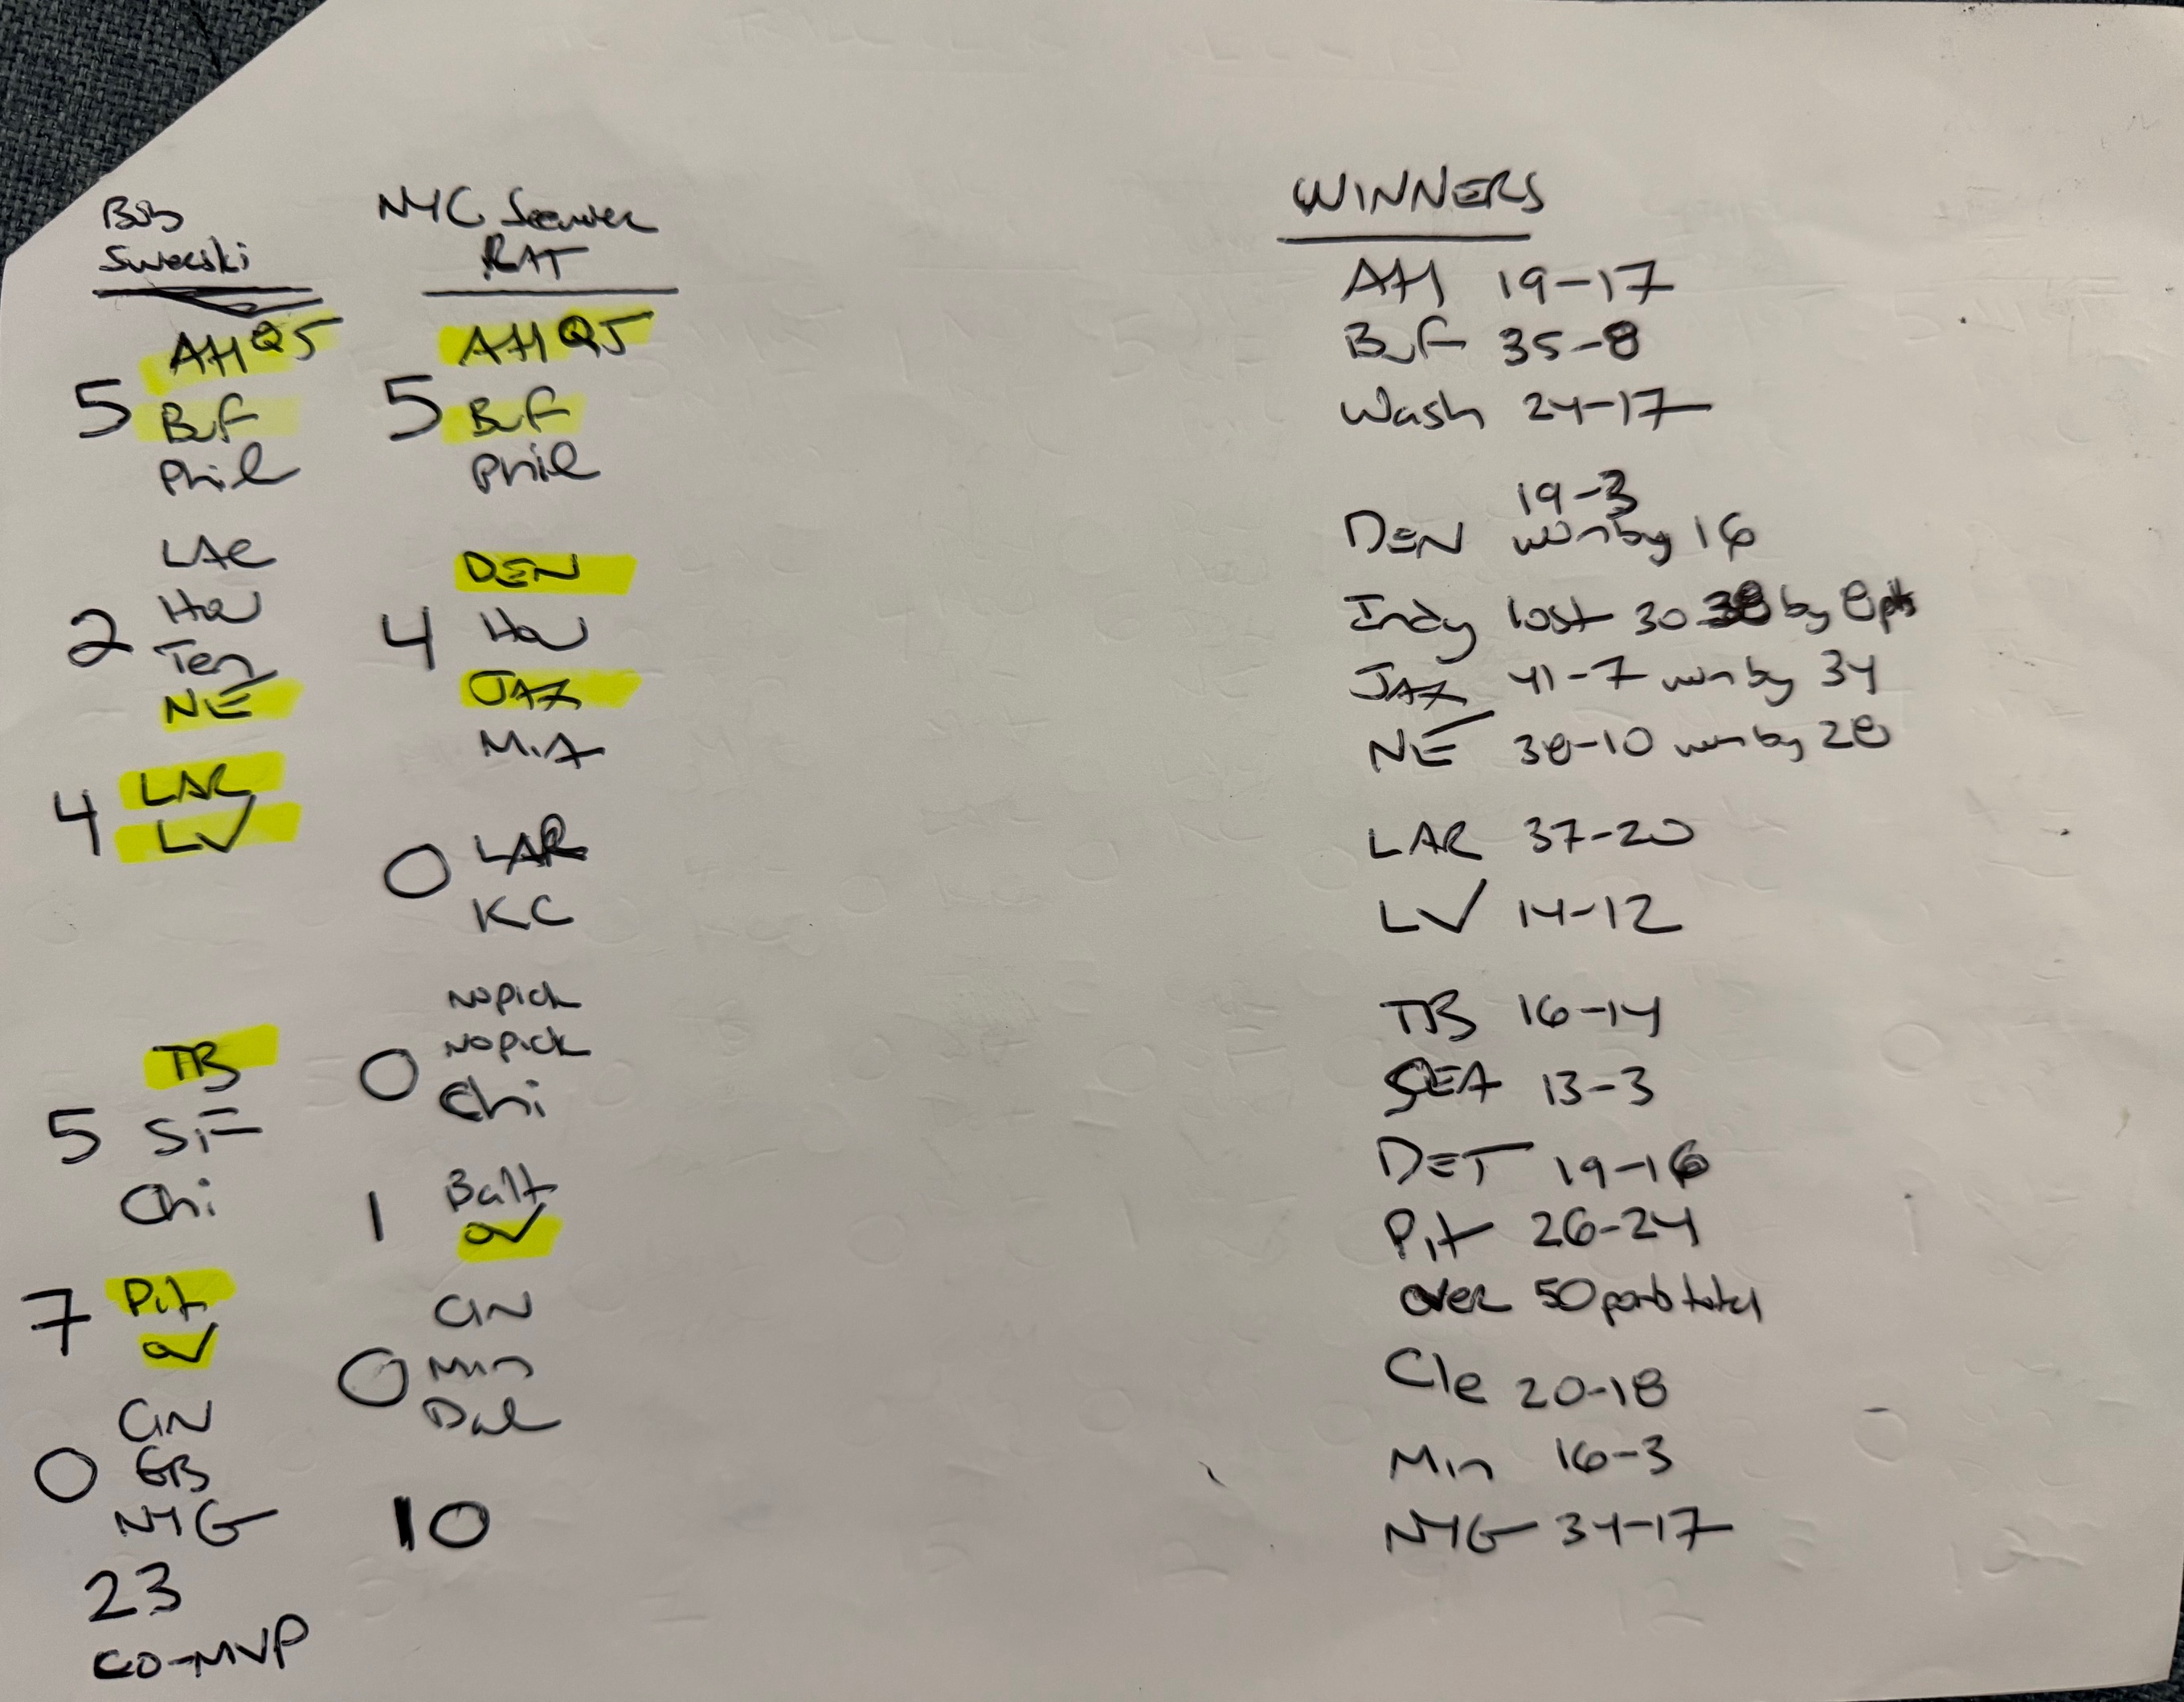 Bob
Swerski
AtlQJ
5
Buf
Phil
LAC
Hou
2
Ten
NE
LAR
4
LV
TB
5
SF
Chi
Pit
7
ov
CIN
0
GB
NYG
23
CO-MVP
NYC Sewer
RAT
Atl QJ
5
Buf
Phil
DEN
4
Hou
JAX
MIA
0
LAR
KC
No pick
No pick
0
Chi
Balt
1
ov
CIN
0
Min
Dal
10
WINNERS
Atl 19-17
Buf 35-8
Wash 24-17
19-3
DEN win by 16
Indy lost 30-38 by 8pts
JAX 41-7 win by 34
NE 38-10 win by 28
LAR 37-20
LV 14-12
TB 16-14
SEA 13-3
DET 19-16
Pit 26-24
over 50 points total
Cle 20-18
Min 16-3
NYG 34-17